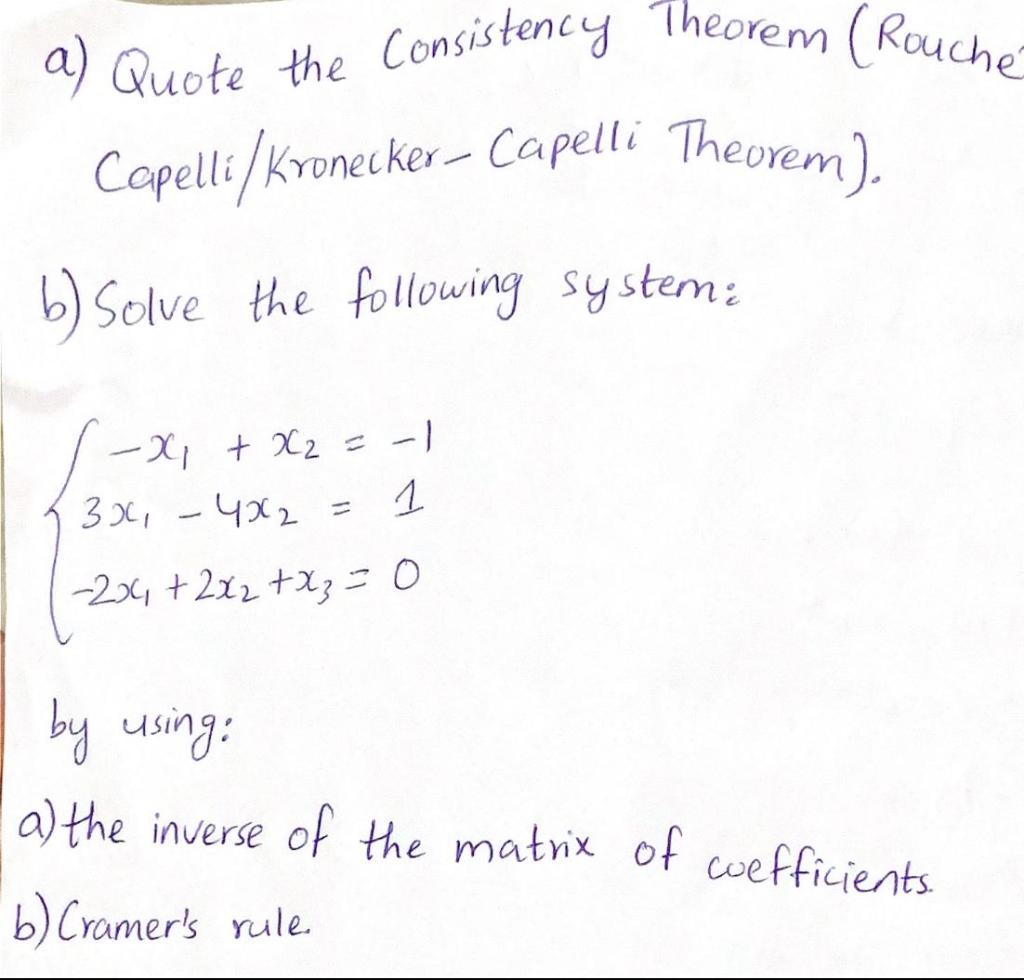 a) Quote the Consistency Theorem (Rouché
Capelli/Kronecker-Capelli Theorem).
b) Solve the following system:
-x₁ + x₂ = -1
3x₁ - 4x₂ = 1
-2x₁ + 2x₂ + x₃ = 0
by using:
a) the inverse of the matrix of coefficients.
b) Cramer's rule.